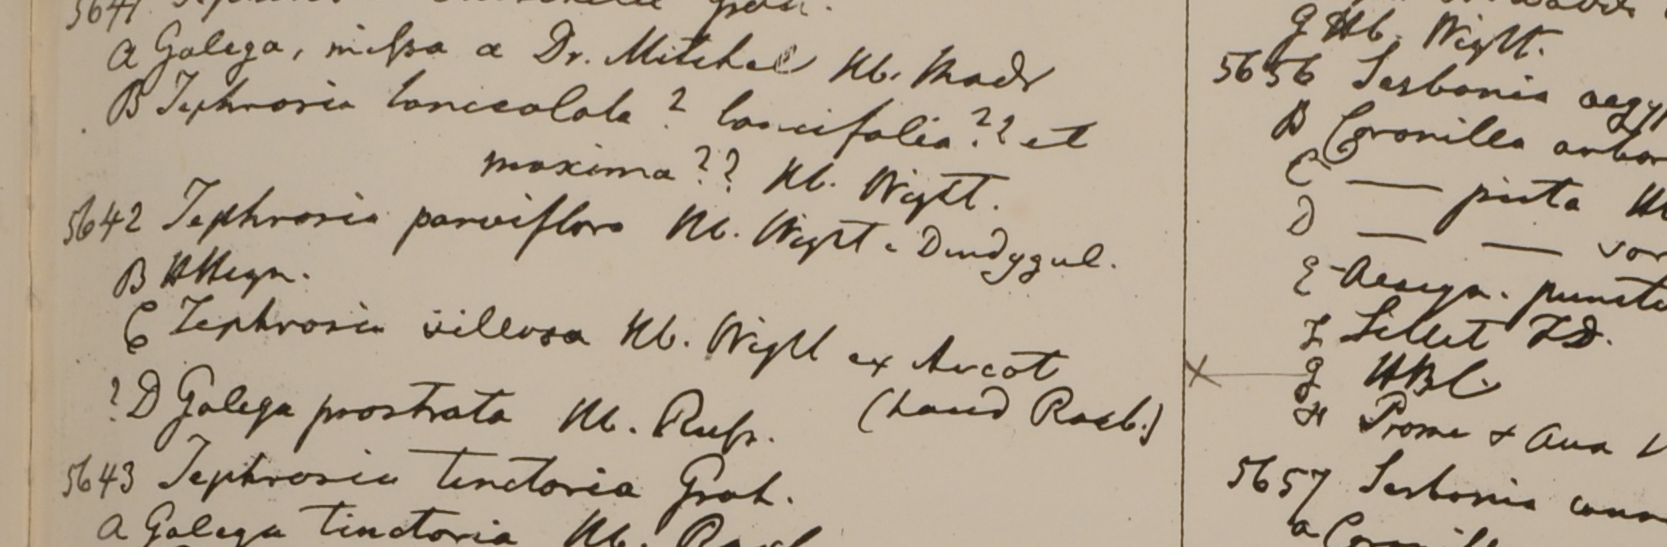 5641 Grah.
A Galega, missa a Dr. Mitchel Hb. Madr
B Tephrosia lanceolata ? lancifolia ?? et
maxima ?? Hb. Wight.
5642 Tephrosia parviflora Hb. Wight e Dindygul.
B HHeyn.
C Tephrosia villosa Hb. Wight ex Arcot
?D Galega prostrata Hb. Russ. (haud Roxb.)
5643 Tephrosia tinctoria Grah.
A Galega tinctoria Hb. Roxb
G Hb. Wight.
5656 Sesbania aegyp
B Coronilla arbor
C —— picta H
D —— —— var
E Aesyn. puncta
F Sillet FD.
G HBC
H Prome & Ava
5657 Sesbania
a